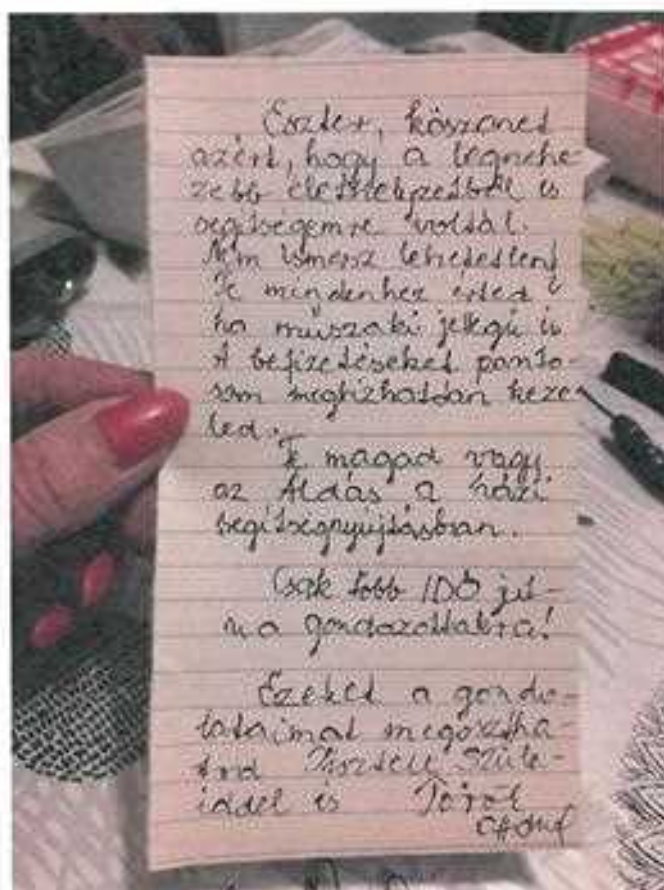 Eszter, köszönet
azért, hogy a legnehe-
zebb élethelyzetben is
segítségemre voltál.
Nem ismersz lehetetlent
Te mindenhez értesz
ha műszaki jellegű is
A befizetéseket ponto-
san megbízhatóan keze-
led.
Te magad vagy
az Áldás a házi
segítségnyujtásban.
Csak több IDŐ jut-
na a gondozottakra!
Ezeket a gondo-
lataimat megoszthat-
tod Szüle-
iddel is Török